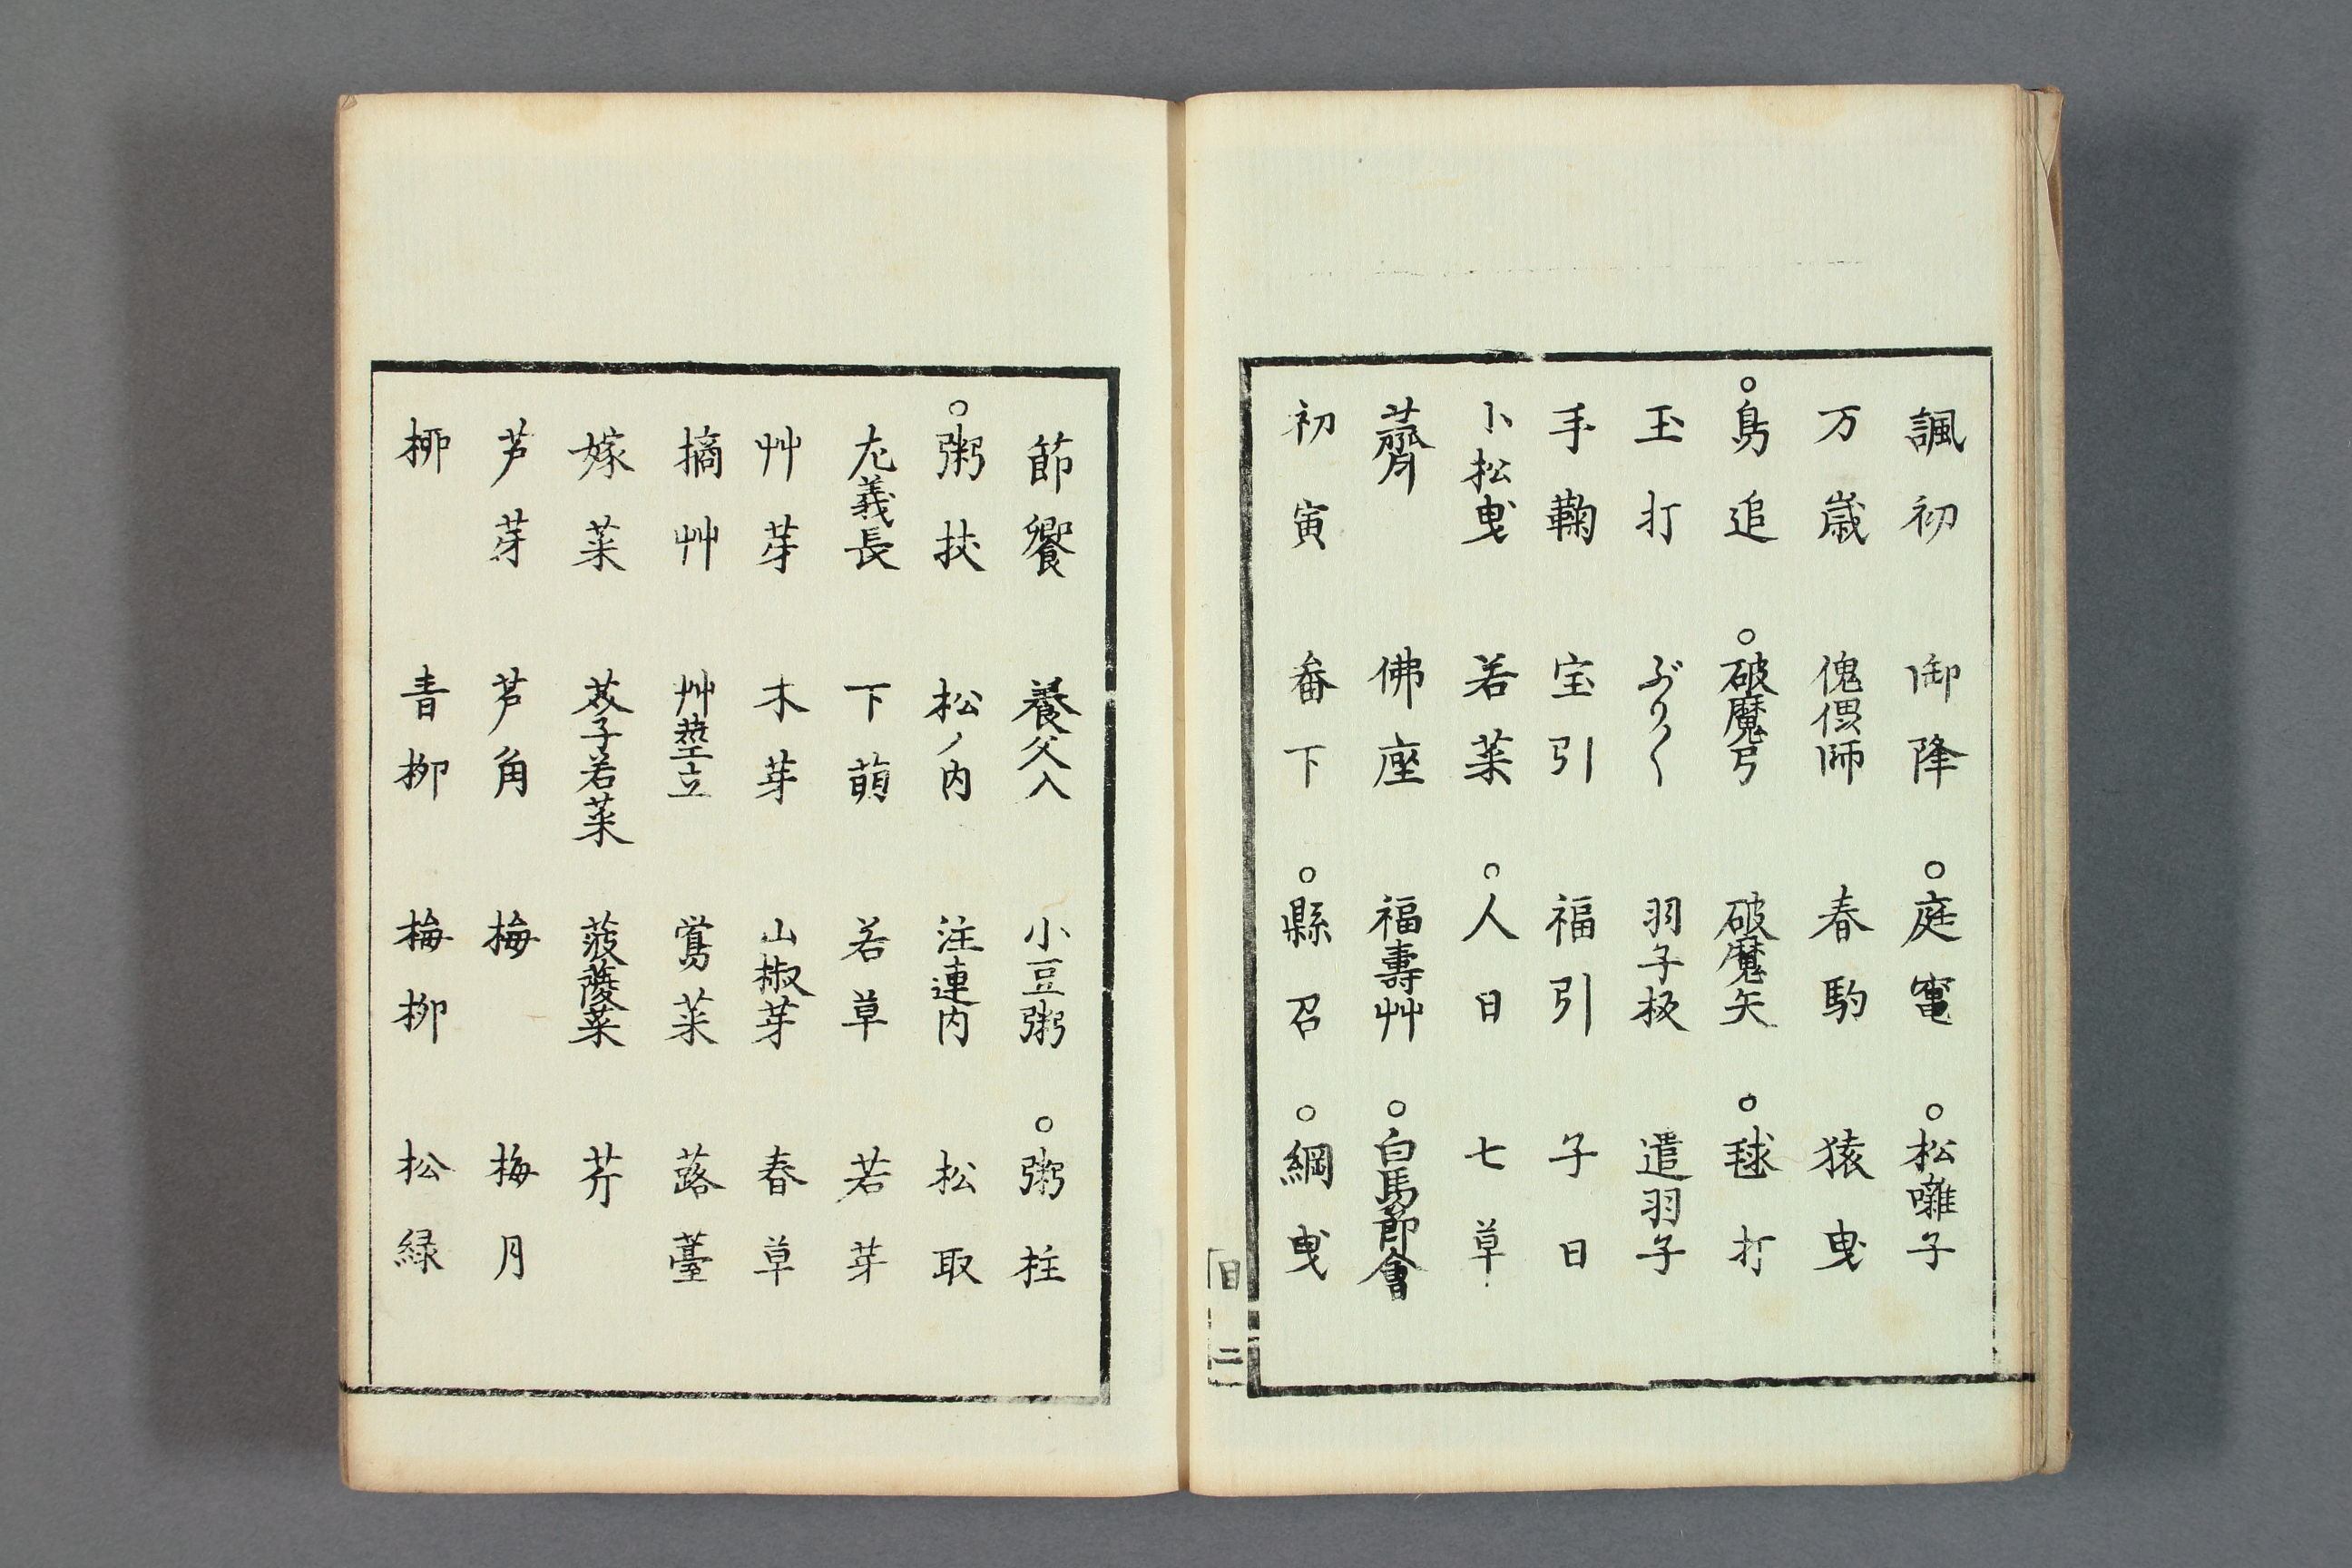 諷初　御降　○庭竃　○松囃子
万歳　傀儡師　春駒　猿曳
○鳥追　○破魔弓　破魔矢　○毬打
玉打　ぶり〳〵　羽子板　遣羽子
手鞠　宝引　福引　子日
小松曳　若菜　○人日　七草
薺　佛座　福壽艸　○白馬節會
初寅　番下　○縣召　○綱曳
二
節饗　養父入　小豆粥　○粥柱
○粥杖　松ノ内　注連内　松取
左義長　下萌　若草　若芽
艸芽　木芽　山椒芽　春草
摘艸　艸莖立　鶯菜　蕗薹
嫁菜　芥子若菜　菠薐菜　芥
芦芽　芦角　梅　梅月
柳　青柳　梅柳　松緑